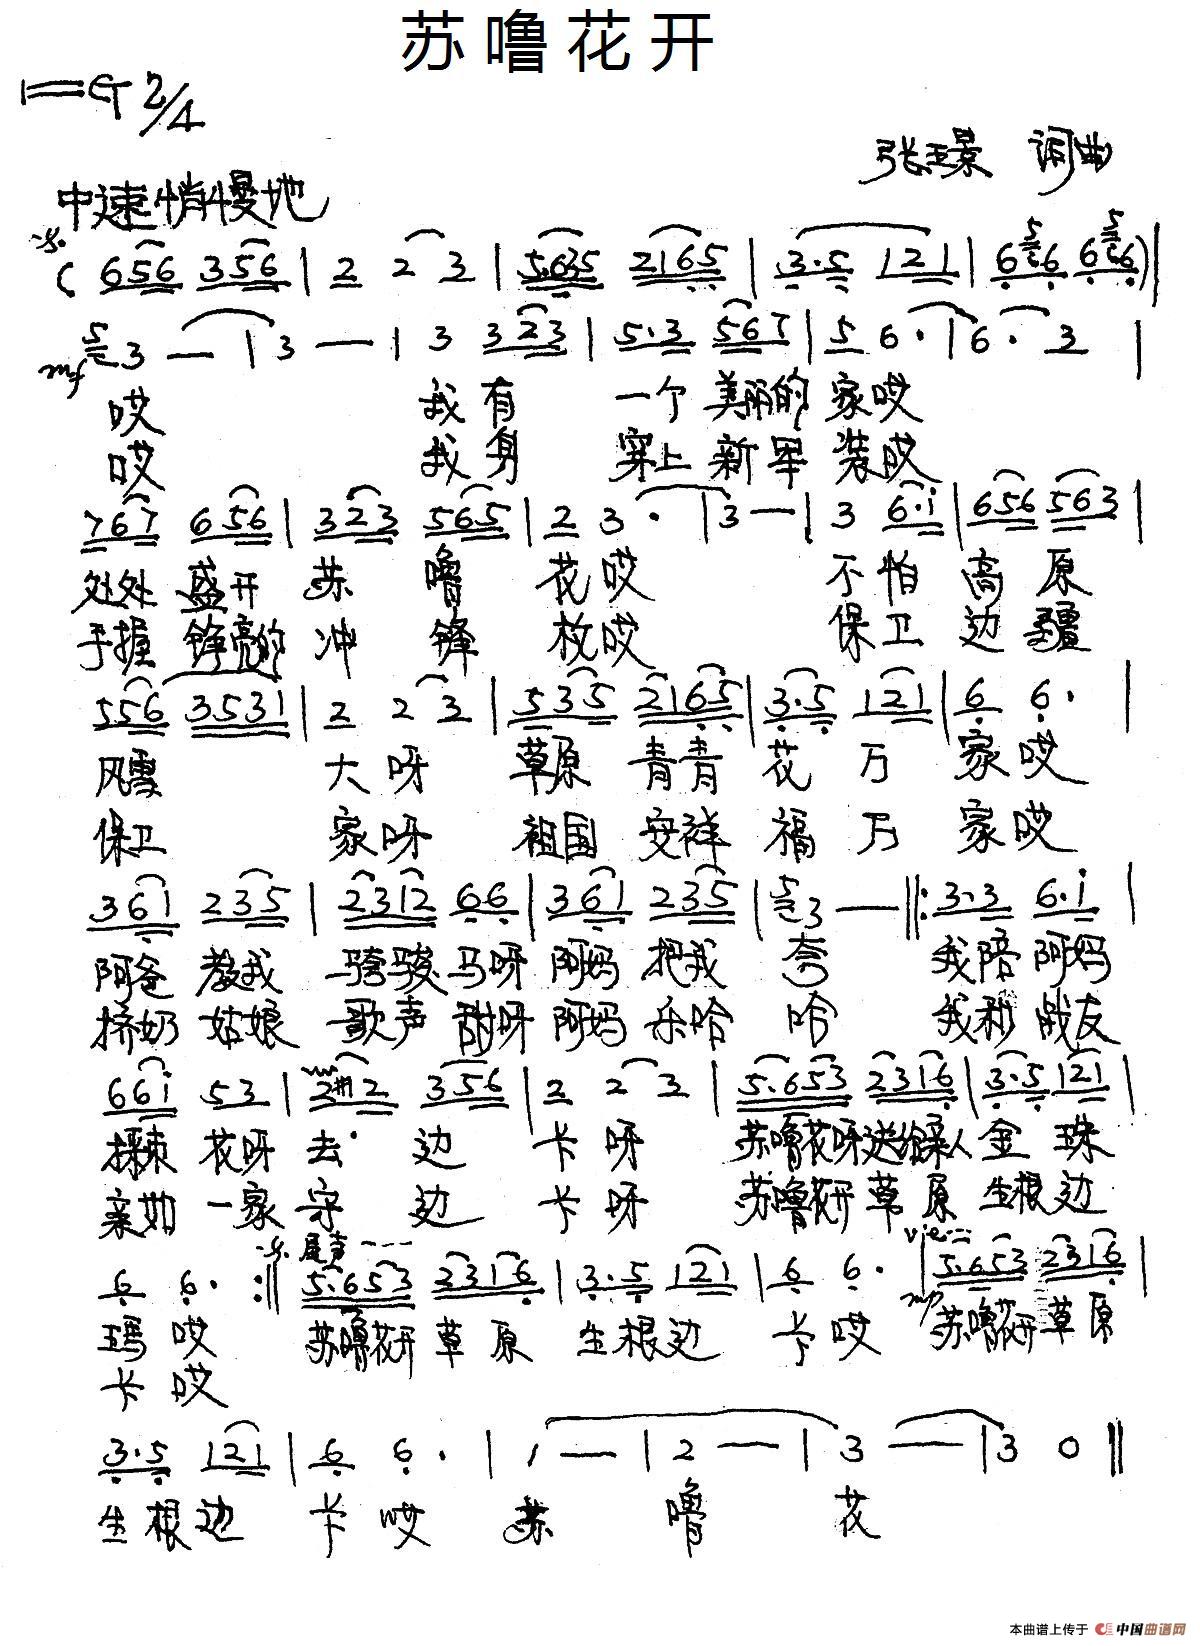 苏噜花开
1=G 2/4
张玉景 词曲
中速悄慢地
( 656 356 | 2 2 3 | 5.635 2165 | 3.5 121 | 6 6 6 6 )
mf 5 3 — | 3 — | 3 323 | 5.3 567 | 5 6. | 6. 3 |
哎 我有 一个 美丽的 家哎
哎 我身 穿上 新军 装哎
767 656 | 323 565 | 2 3. | 3 — | 3 6.i | 656 563 |
处处 盛开 苏 噜 花哎 不怕 高 原
手握 铮亮的 冲 锋 枚哎 保卫 边 疆
556 3531 | 2 2 3 | 535 2165 | 3.5 121 | 6 6. |
风雪 大呀 草原 青青 花 万 家哎
保卫 家呀 祖国 安祥 福 万 家哎
361 235 | 2312 66 | 361 235 | 5 3 — ‖: 3.3 6.i |
阿爸 教我 骑骏 马呀 阿妈 把我 夸 我陪 阿妈
挤奶 姑娘 歌声 甜呀 阿妈 乐哈 哈 我和 战友
66i 53 | 2#2 356 | 2 2 3 | 5.653 2316 | 3.5 121 |
採束 花呀 去 边 卡呀 苏噜花呀送给亲人 金 珠
亲如 一家 守 边 卡呀 苏噜花开 草原 生根边
6 6. :‖ 尾声 5.653 2316 | 3.5 121 | 6 6. | 5.653 2316 |
玛哎 苏噜花开 草原 生根边 卡哎 mp 苏噜花开 草原
卡哎
3.5 121 | 6 6. | 1 — | 2 — | 3 — | 3 0 ‖
生根边 卡哎 苏 噜 花
本曲谱上传于 中国曲谱网